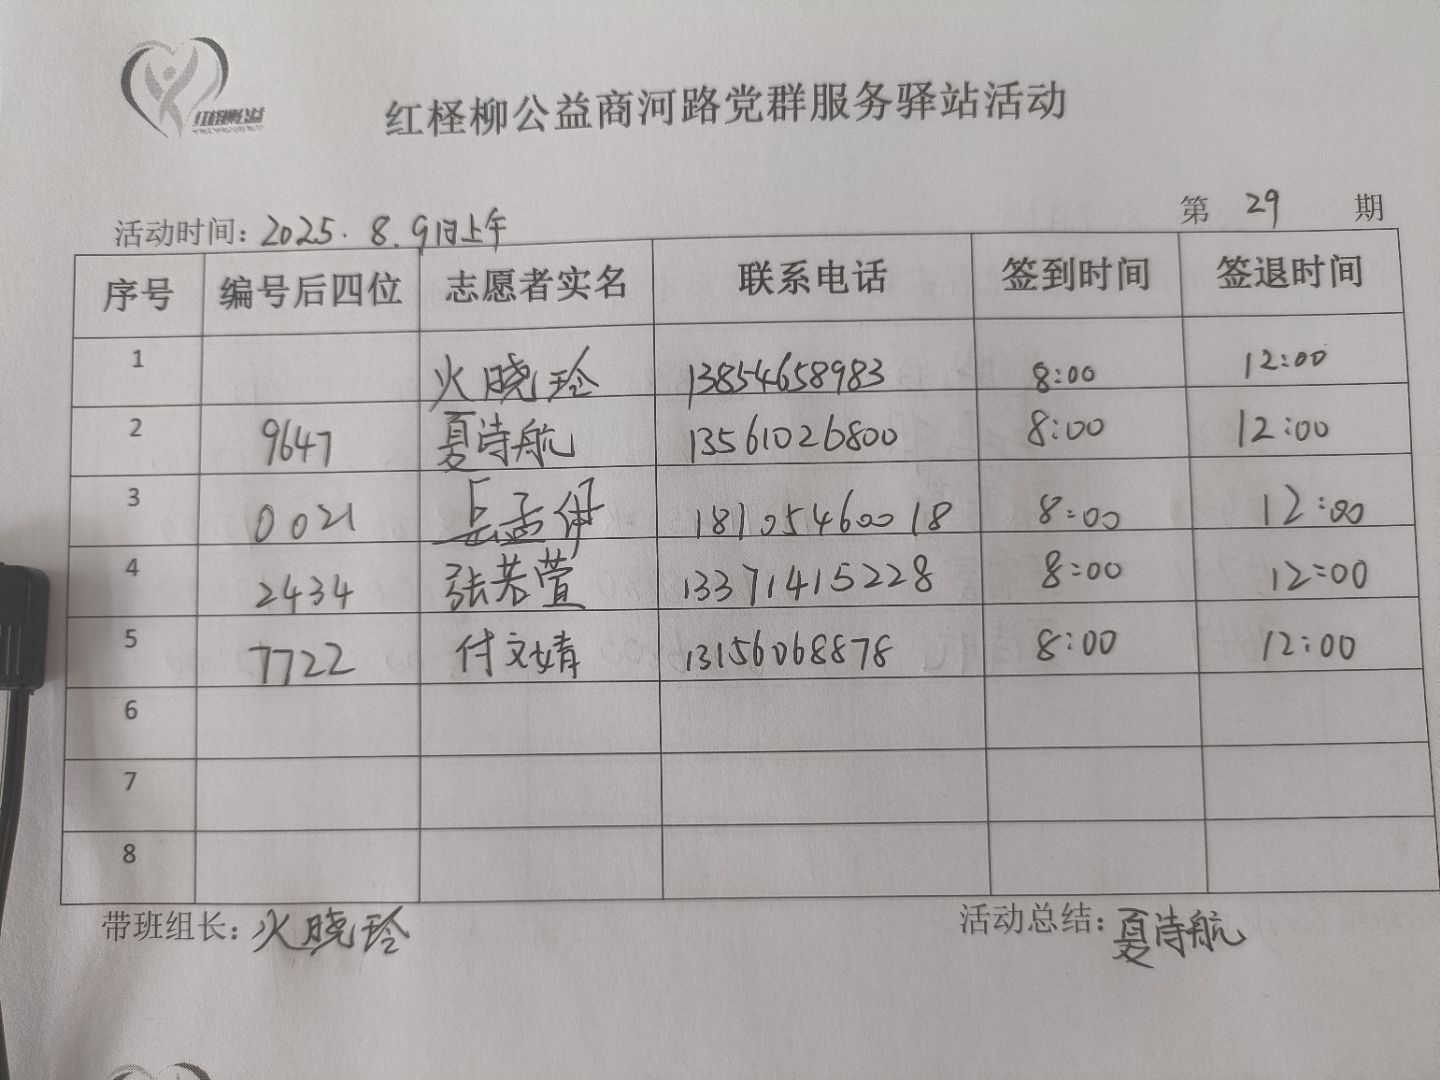 红柽柳公益
红柽柳公益商河路党群服务驿站活动
活动时间：2025.8.9日上午 第 29 期
序号 编号后四位 志愿者实名 联系电话 签到时间 签退时间
1 火晓玲 13854658983 8:00 12:00
2 9647 夏诗航 13561026800 8:00 12:00
3 0021 孟 18105460018 8:00 12:00
4 2434 张若萱 13371415228 8:00 12:00
5 7722 付文婧 13156068878 8:00 12:00
6
7
8
带班组长：火晓玲 活动总结：夏诗航